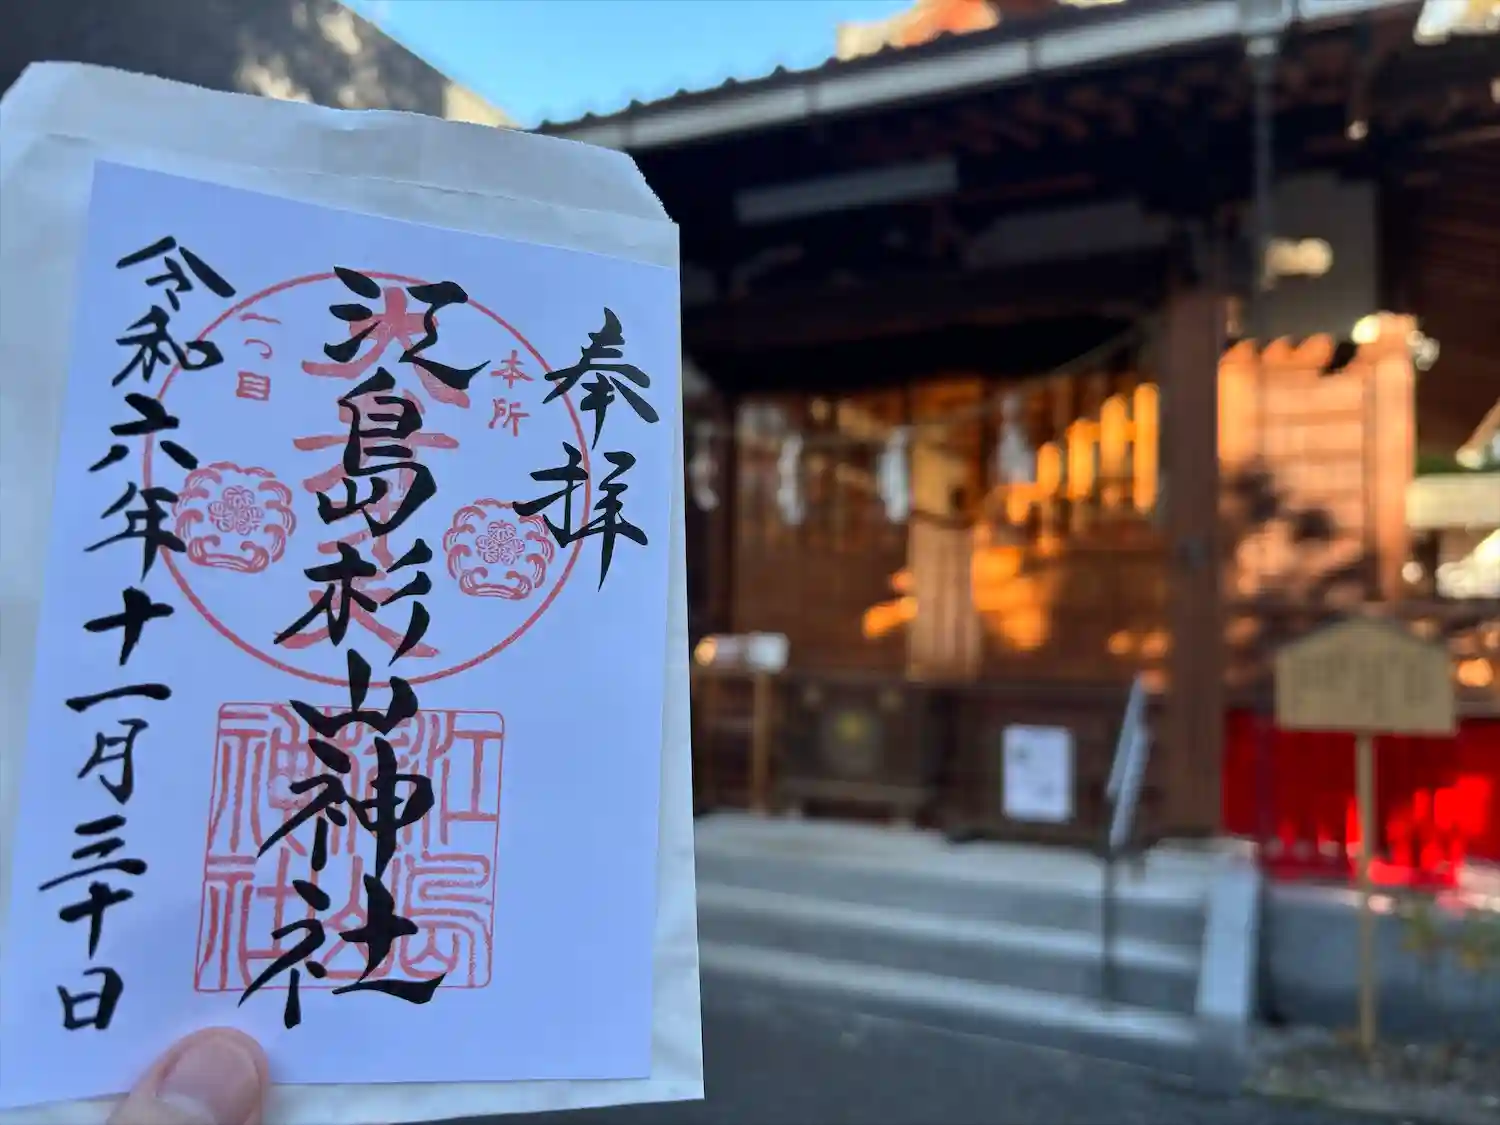 奉拝
本所
一つ目
江島杉山神社
江島
杉山
神社
令和六年十一月三十日